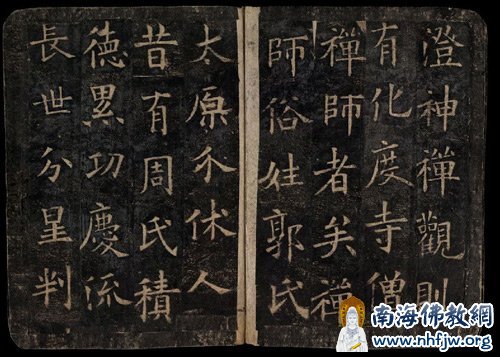 澄神禪觀則
有化度寺僧
禪師者矣禪
師俗姓郭氏
太原介休人
昔有周氏積
德累功慶流
長世分星判
南海佛教網
www.nhfjw.org